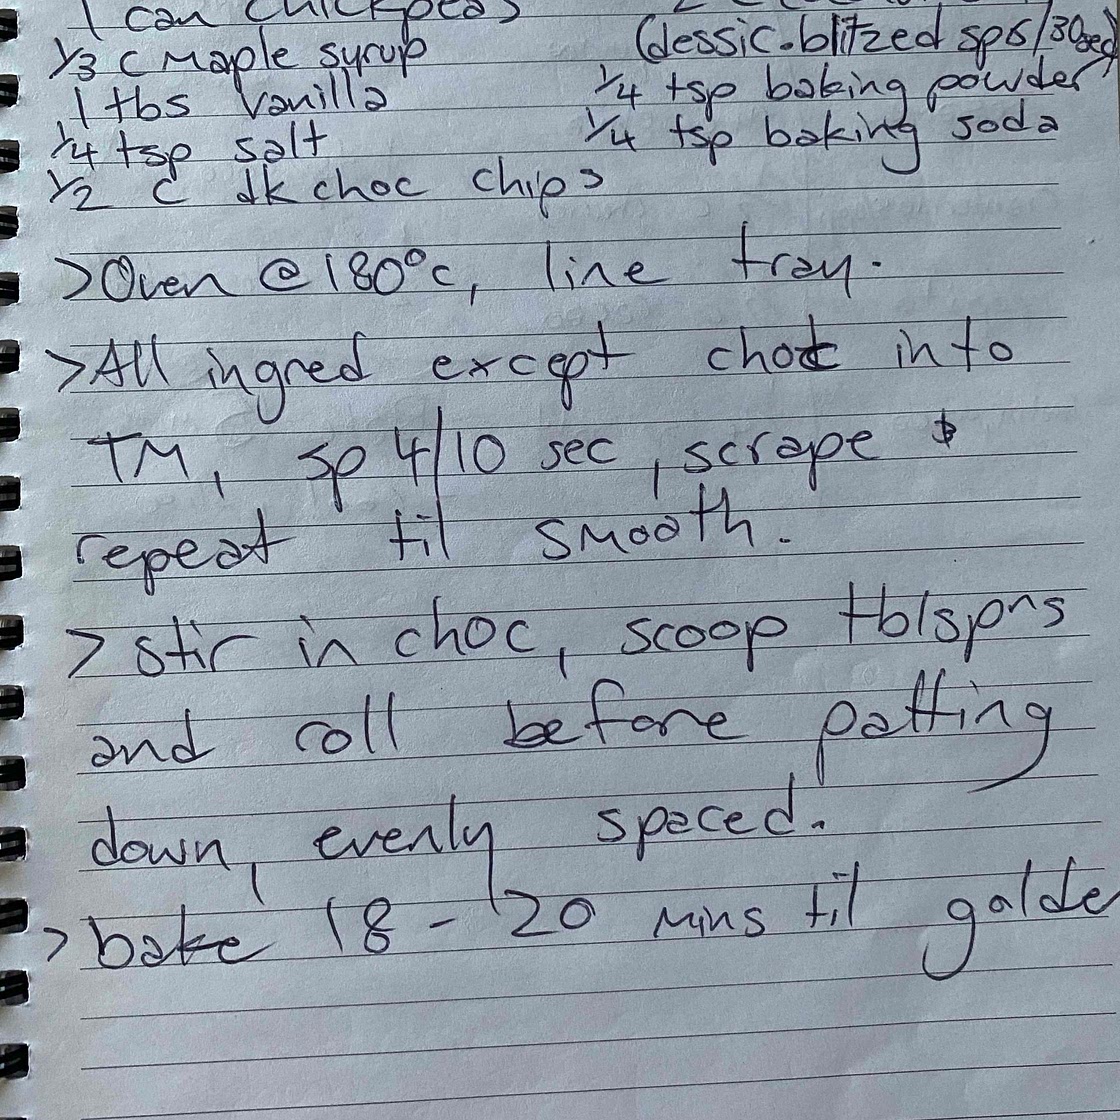 1 can chickpeas
1/3 c maple syrup (dessic. blitzed sp8/30sec)
1 tbs vanilla 1/4 tsp baking powder
1/4 tsp salt 1/4 tsp baking soda
1/2 c dk choc chips
>Oven @ 180°c, line tray.
>All ingred except choc into
TM, sp 4/10 sec, scrape &
repeat til smooth.
> stir in choc, scoop tblspns
and roll before patting
down, evenly spaced.
> bake 18 - 20 mins til golde